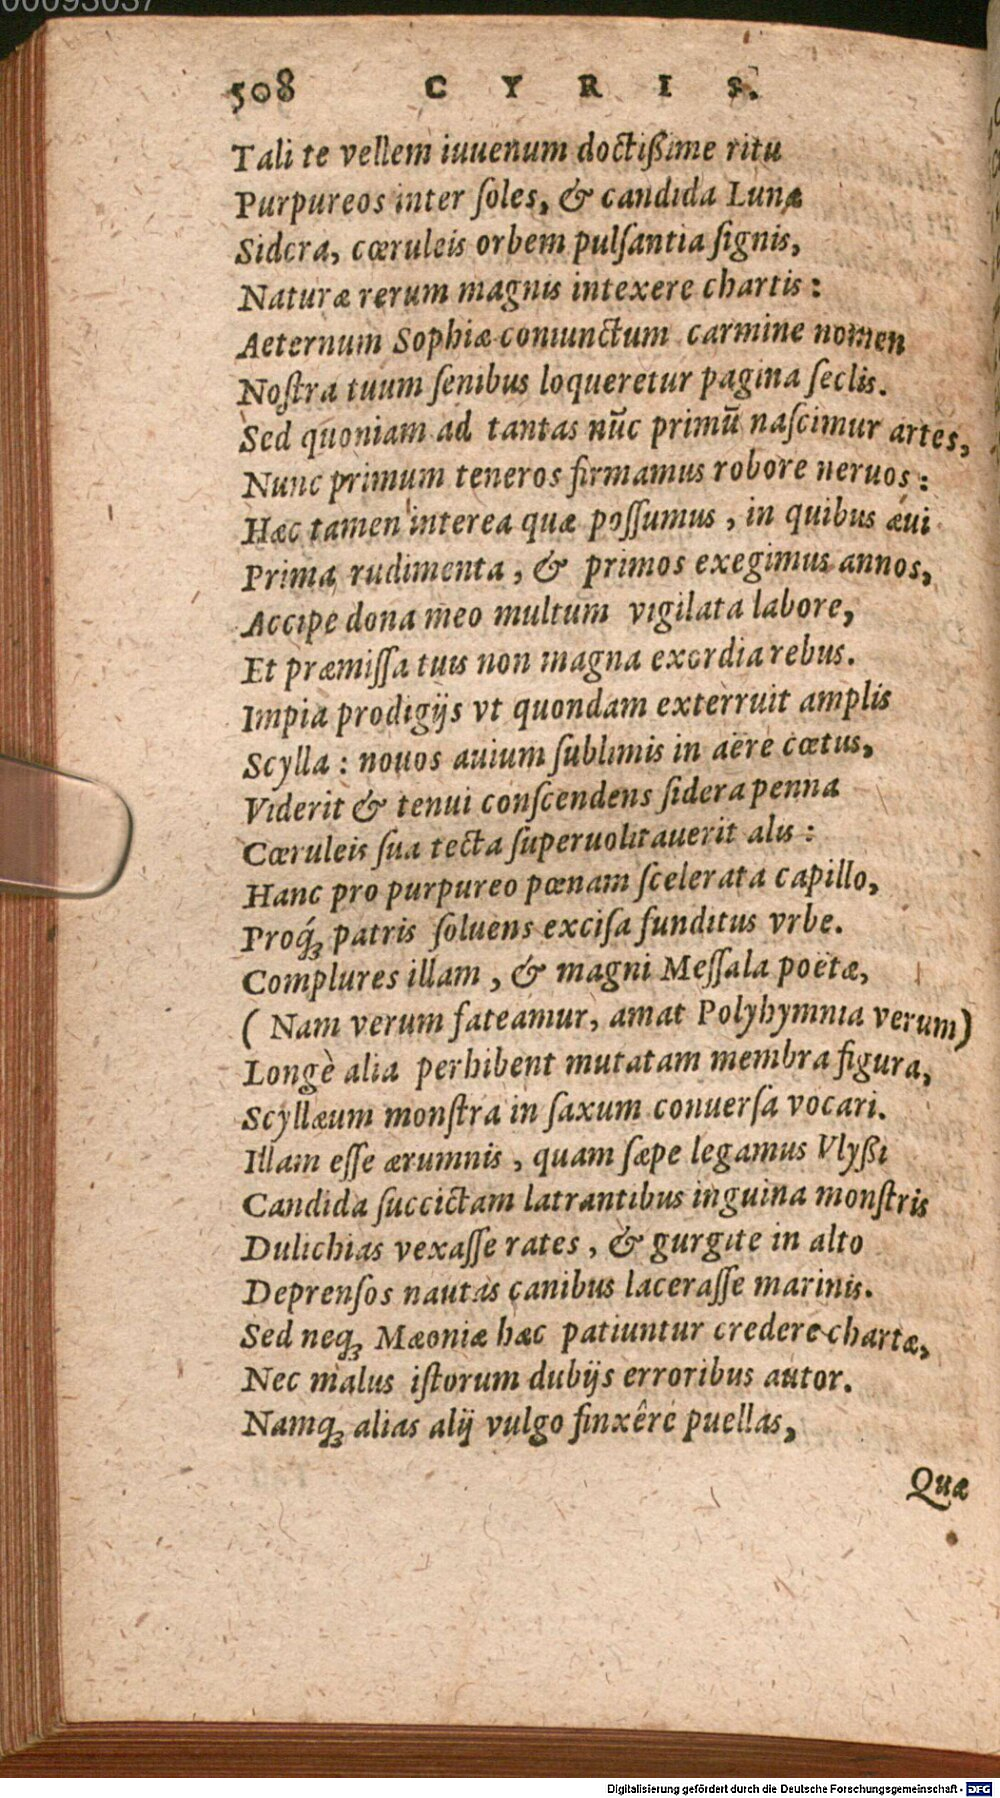 00093037
508 CYRIS.
Tali te vellem iuuenum doctißime ritu
Purpureos inter ſoles, & candida Lunæ
Sidera, cœruleis orbem pulſantia ſignis,
Naturæ rerum magnis intexere chartis:
Aeternum Sophiæ coniunctum carmine nomen
Noſtra tuum ſenibus loqueretur pagina ſeclis.
Sed quoniam ad tantas nūc primū naſcimur artes,
Nunc primum teneros firmamus robore neruos:
Hæc tamen interea quæ poſſumus, in quibus æui
Prima rudimenta, & primos exegimus annos,
Accipe dona meo multum vigilata labore,
Et præmiſſa tuis non magna exordia rebus.
Impia prodigijs vt quondam exterruit amplis
Scylla: nouos auium ſublimis in aëre cœtus,
Viderit & tenui conſcendens ſidera penna
Cœruleis ſua tecta ſuperuolitauerit alis:
Hanc pro purpureo pœnam ſcelerata capillo,
Proq́ꝫ patris ſoluens exciſa funditus vrbe.
Complures illam, & magni Meſſala poëtæ,
(Nam verum fateamur, amat Polyhymnia verum)
Longè alia perhibent mutatam membra figura,
Scyllæum monſtra in ſaxum conuerſa vocari.
Illam eſſe ærumnis, quam ſæpe legamus Vlyßi
Candida ſuccictam latrantibus inguina monſtris
Dulichias vexaſſe rates, & gurgite in alto
Deprenſos nautas canibus laceraſſe marinis.
Sed neqꝫ Mæoniæ hæc patiuntur credere chartæ,
Nec malus iſtorum dubijs erroribus autor.
Namqꝫ alias alij vulgo finxêre puellas,
Quæ
Digitalisierung gefördert durch die Deutsche Forschungsgemeinschaft - DFG